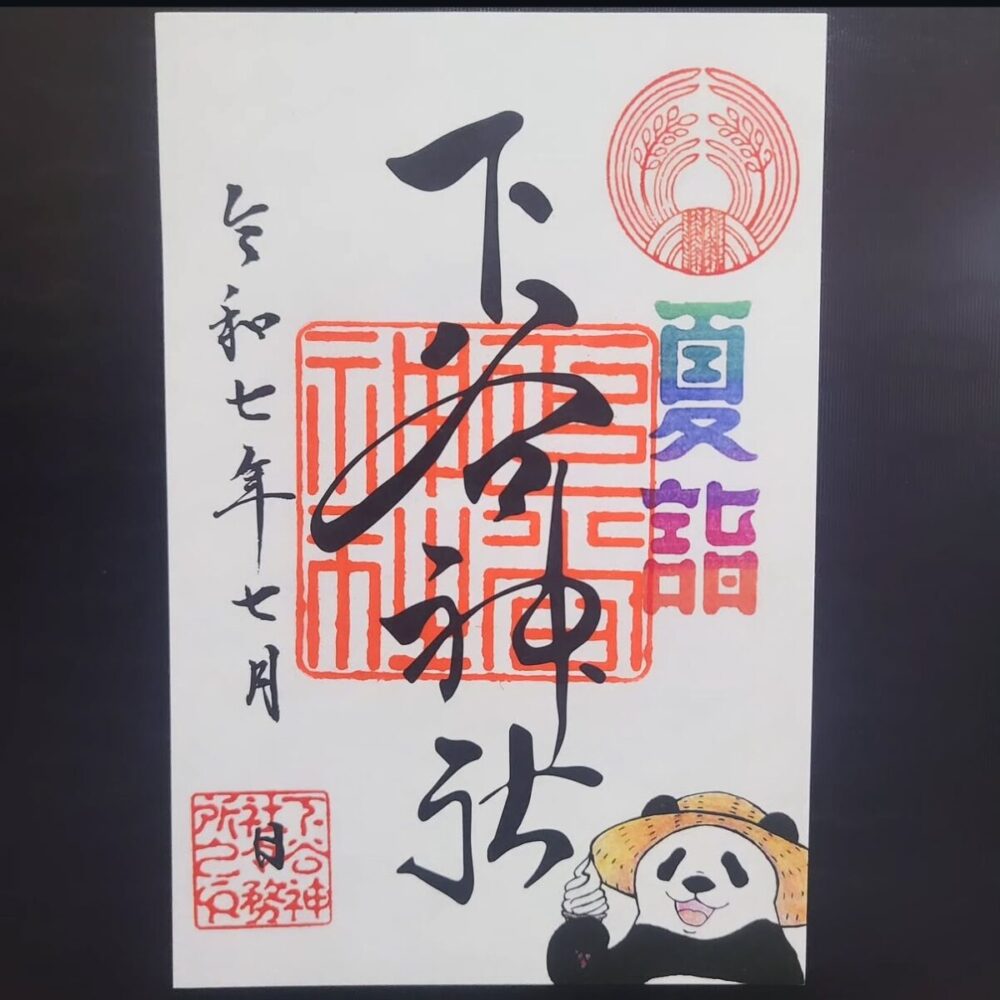 夏詣
下谷神社
令和七年七月 日
下谷神
社社務
所之印